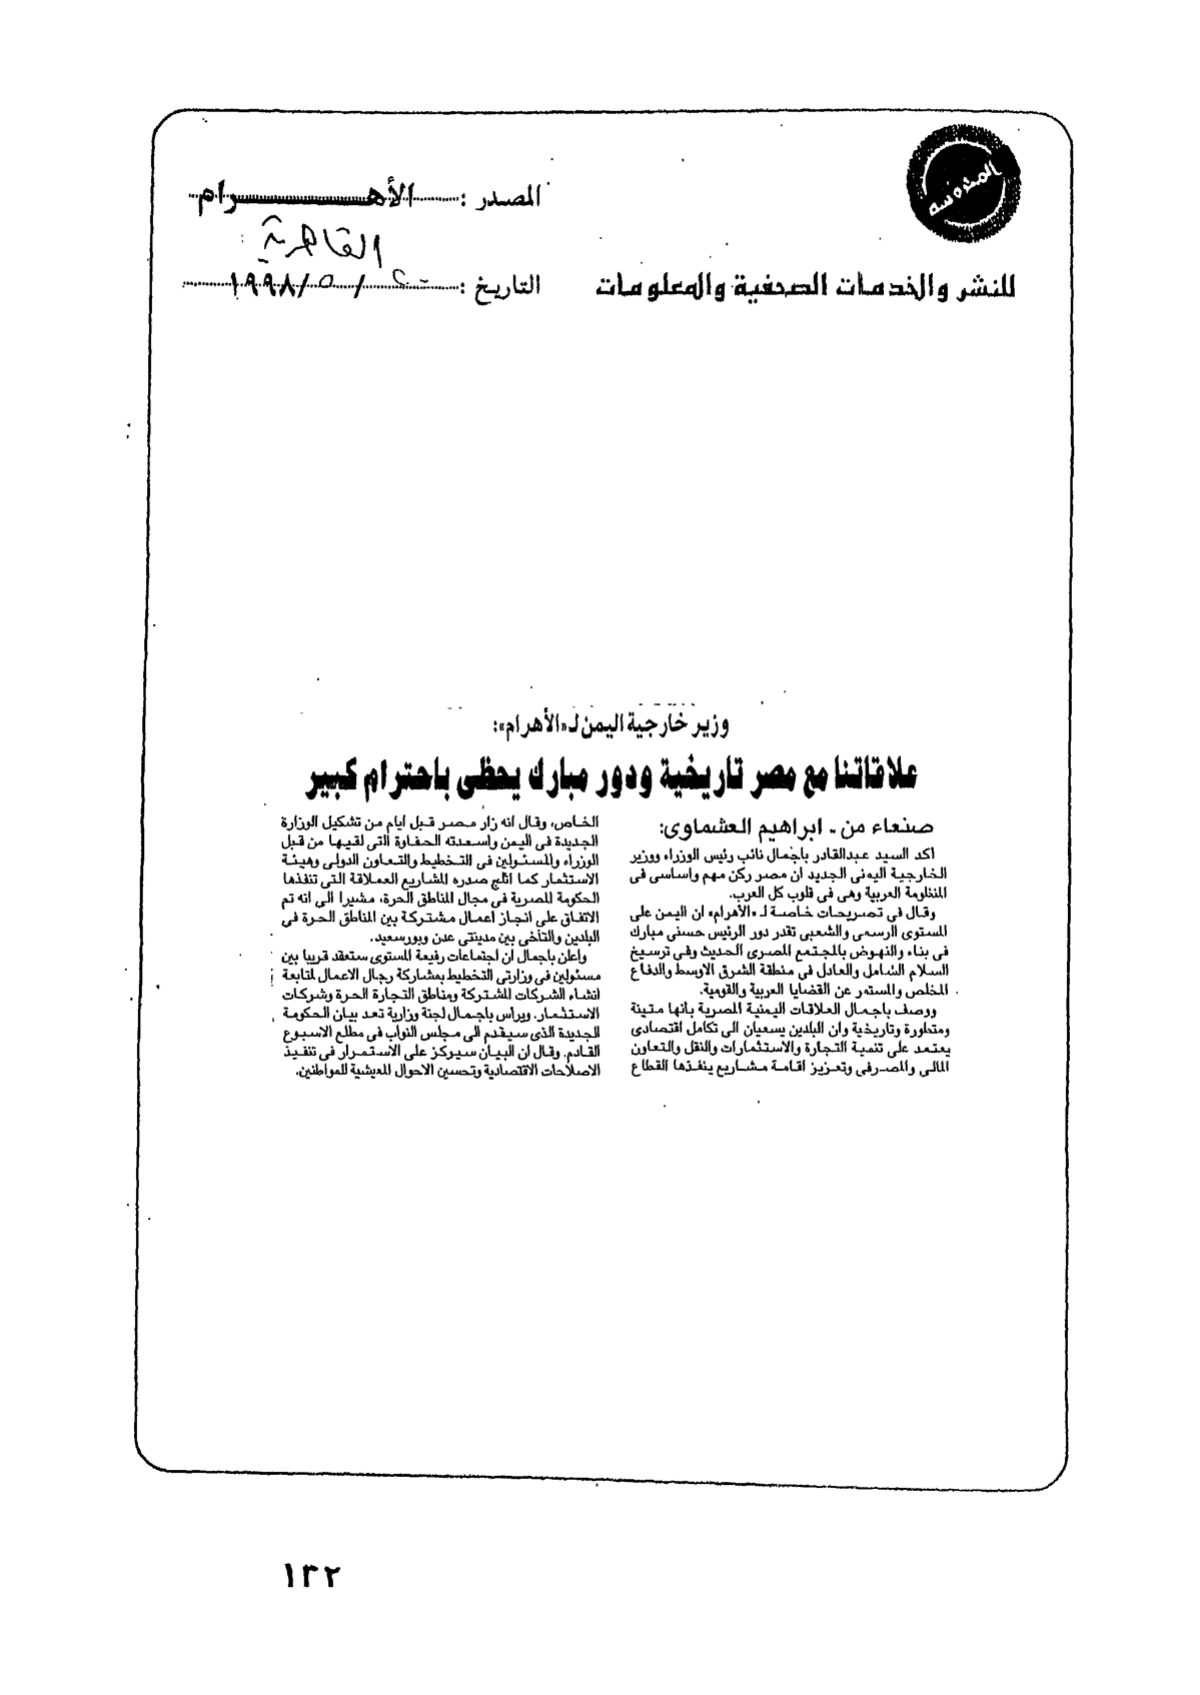 المحروسة
للنشر والخدمات الصحفية والمعلومات
المصدر : الأهـــــرام
القاهرية
التاريخ : ٢٠ / ٥ / ١٩٩٨
وزير خارجية اليمن لـ«الأهرام»:
علاقاتنا مع مصر تاريخية ودور مبارك يحظى باحترام كبير
صنعاء من .. ابراهيم العشماوى:
أكد السيد عبدالقادر باجمال نائب رئيس الوزراء ووزير
الخارجية اليمنى الجديد ان مصر ركن مهم واساسى فى
المنظومة العربية وهى فى قلوب كل العرب.
وقال فى تصريحات خاصة لـ «الأهرام» ان اليمن على
المستوى الرسمى والشعبى تقدر دور الرئيس حسنى مبارك
فى بناء والنهوض بالمجتمع المصرى الحديث وفى ترسيخ
السلام الشامل والعادل فى منطقة الشرق الاوسط والدفاع
المخلص والمستمر عن القضايا العربية والقومية.
ووصف باجمال العلاقات اليمنية المصرية بأنها متينة
ومتطورة وتاريخية وان البلدين يسعيان الى تكامل اقتصادى
يعتمد على تنمية التجارة والاستثمارات والنقل والتعاون
المالى والمصرفى وتعزيز اقامة مشاريع ينفذها القطاع
الخاص، وقال انه زار مصر قبل ايام من تشكيل الوزارة
الجديدة فى اليمن واسعدته الحفاوة التى لقيها من قبل
الوزراء والمسئولين فى التخطيط والتعاون الدولى وهيئة
الاستثمار كما اثلج صدره المشاريع العملاقة التى تنفذها
الحكومة المصرية فى مجال المناطق الحرة، مشيرا الى انه تم
الاتفاق على انجاز اعمال مشتركة بين المناطق الحرة فى
البلدين والتآخى بين مدينتى عدن وبورسعيد.
واعلن باجمال ان اجتماعات رفيعة المستوى ستعقد قريبا بين
مسئولين فى وزارتى التخطيط بمشاركة رجال الاعمال لمتابعة
انشاء الشركات المشتركة ومناطق التجارة الحرة وشركات
الاستثمار. ويرأس باجمال لجنة وزارية تعد بيان الحكومة
الجديدة الذى سيقدم الى مجلس النواب فى مطلع الاسبوع
القادم. وقال ان البيان سيركز على الاستمرار فى تنفيذ
الاصلاحات الاقتصادية وتحسين الاحوال المعيشية للمواطنين.
١٣٢